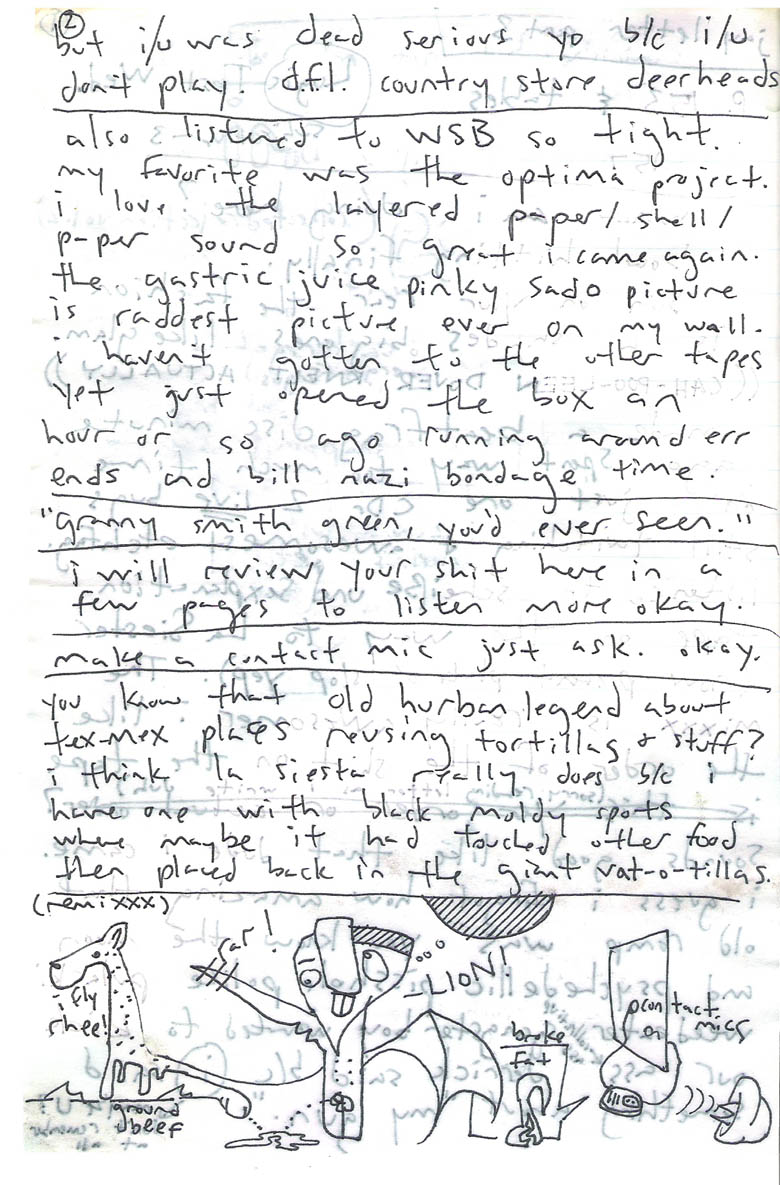 2
but i/u was dead serious yo b/c i/u
don't play. d.f.l. country store deerheads
also listened to WSB so tight.
my favorite was the optima project.
i love the layered paper/shell/
paper sound so great i came again.
the gastric juice pinky sado picture
is raddest picture ever on my wall.
i haven't gotten to the other tapes
yet just opened the box an
hour or so ago running around err
ends and bill nazi bondage time.
"granny smith green, you'd ever seen."
i will review your shit here in a
few pages to listen more okay.
make a contact mic just ask. okay.
you know that old hurban legend about
tex-mex places reusing tortillas & stuff?
i think la siesta really does b/c i
have one with black moldy spots
where maybe it had touched other food
then placed back in the giant vat-o-tillas.
(remixxx)
rar!
LION!
fly
shee!
ground
beef
broke
fat
contact
mics